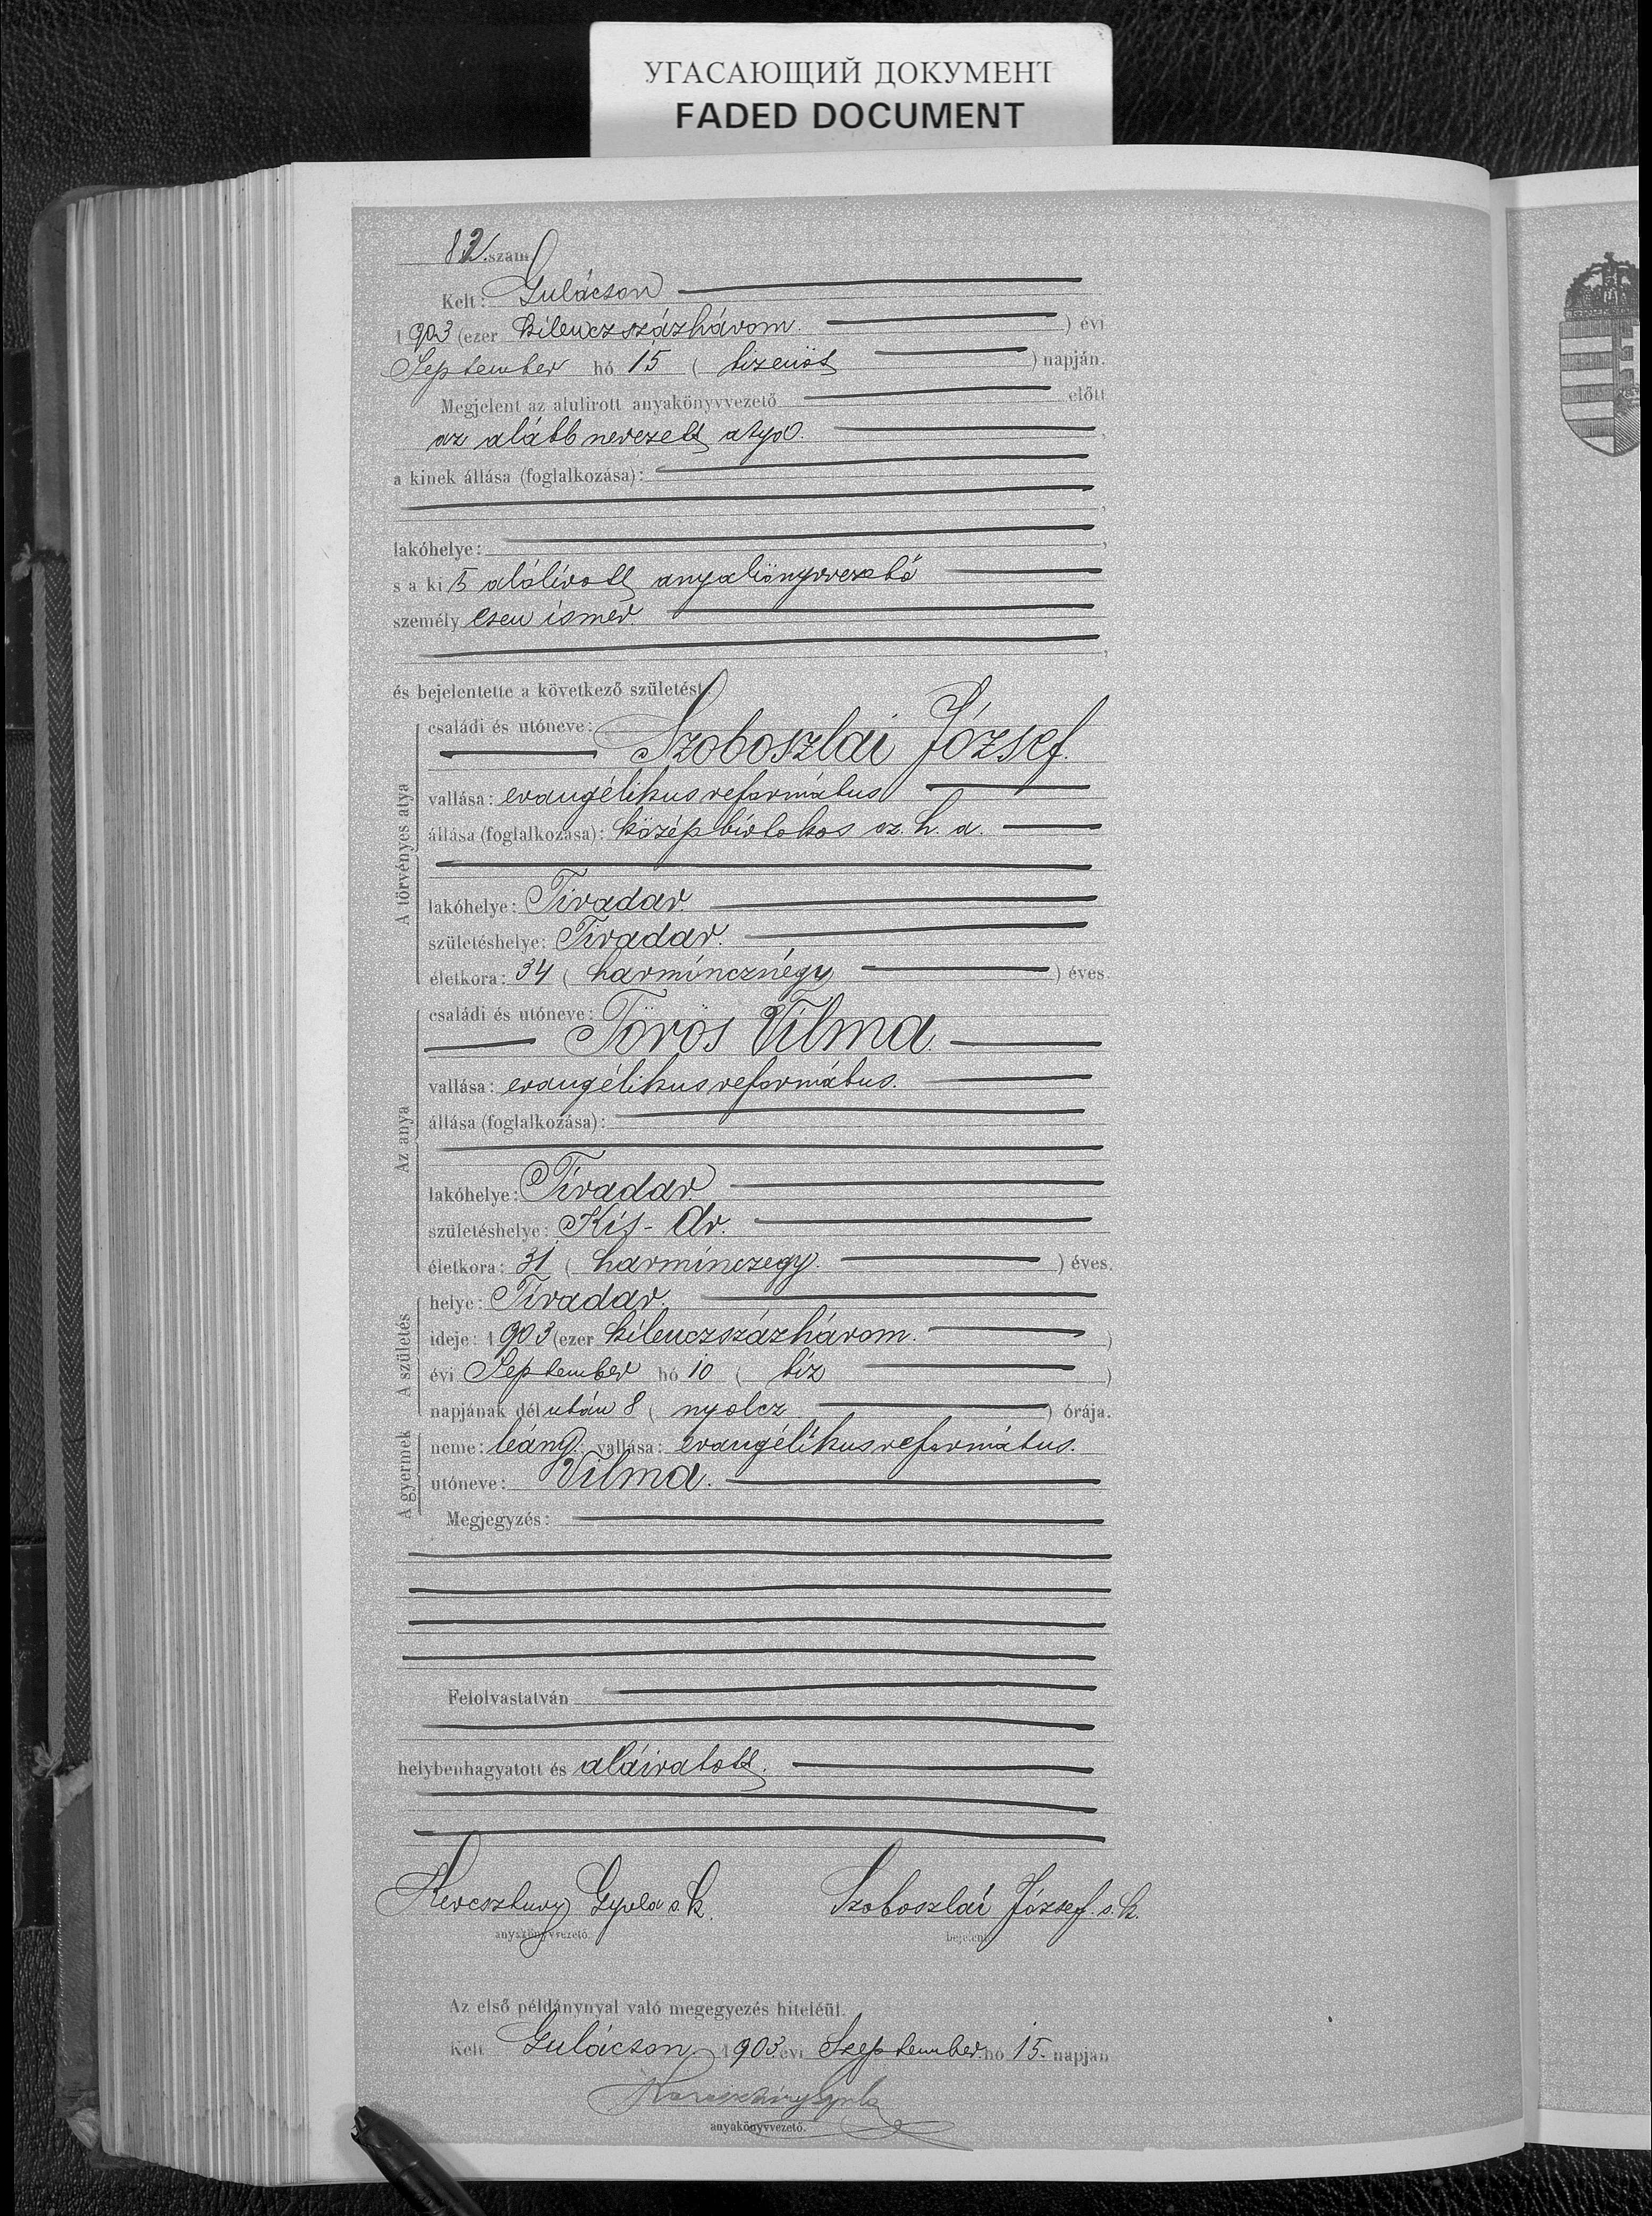 УГАСАЮЩИЙ ДОКУМЕНТ
FADED DOCUMENT
82. szám.
Kelt: Gulácson
1903 (ezer kilenczszázhárom.) évi
September hó 15 (tizenöt) napján.
Megjelent az alulirott anyakönyvvezető előtt
az alább nevezett atya.
a kinek állása (foglalkozása):
lakóhelye:
s a ki t alólírott anyakönyvvezető
személyesen ismer.
és bejelentette a következő születést:
A törvényes atya
családi és utóneve:
Szoboszlai József.
vallása: evangélikus református
állása (foglalkozása): középbirtokos cz. h. a.
lakóhelye: Tivadar.
születéshelye: Tivadar.
életkora: 34 (harmincznégy) éves.
Az anya
családi és utóneve:
Törös Vilma.
vallása: evangélikus református.
állása (foglalkozása):
lakóhelye: Tivadar
születéshelye: Kis-Ar.
életkora: 31 (harminczegy.) éves.
A születés
helye: Tivadar.
ideje: 1903 (ezer kilenczszázhárom.)
évi September hó 10 (tiz)
napjának délután 8 (nyolcz) órája.
A gyermek
neme: leány. vallása: evangélikus református.
utóneve: Vilma.
Megjegyzés:
Felolvastatván
helybenhagyatott és aláiratott.
Keresztury Gyula s.k. Szoboszlai József s.k.
anyakönyvvezető. bejelentő.
Az első példánynyal való megegyezés hiteléül.
Kelt Gulácson 1903 évi Szeptember hó 15. napján
Keresztury Gyula
anyakönyvvezető.